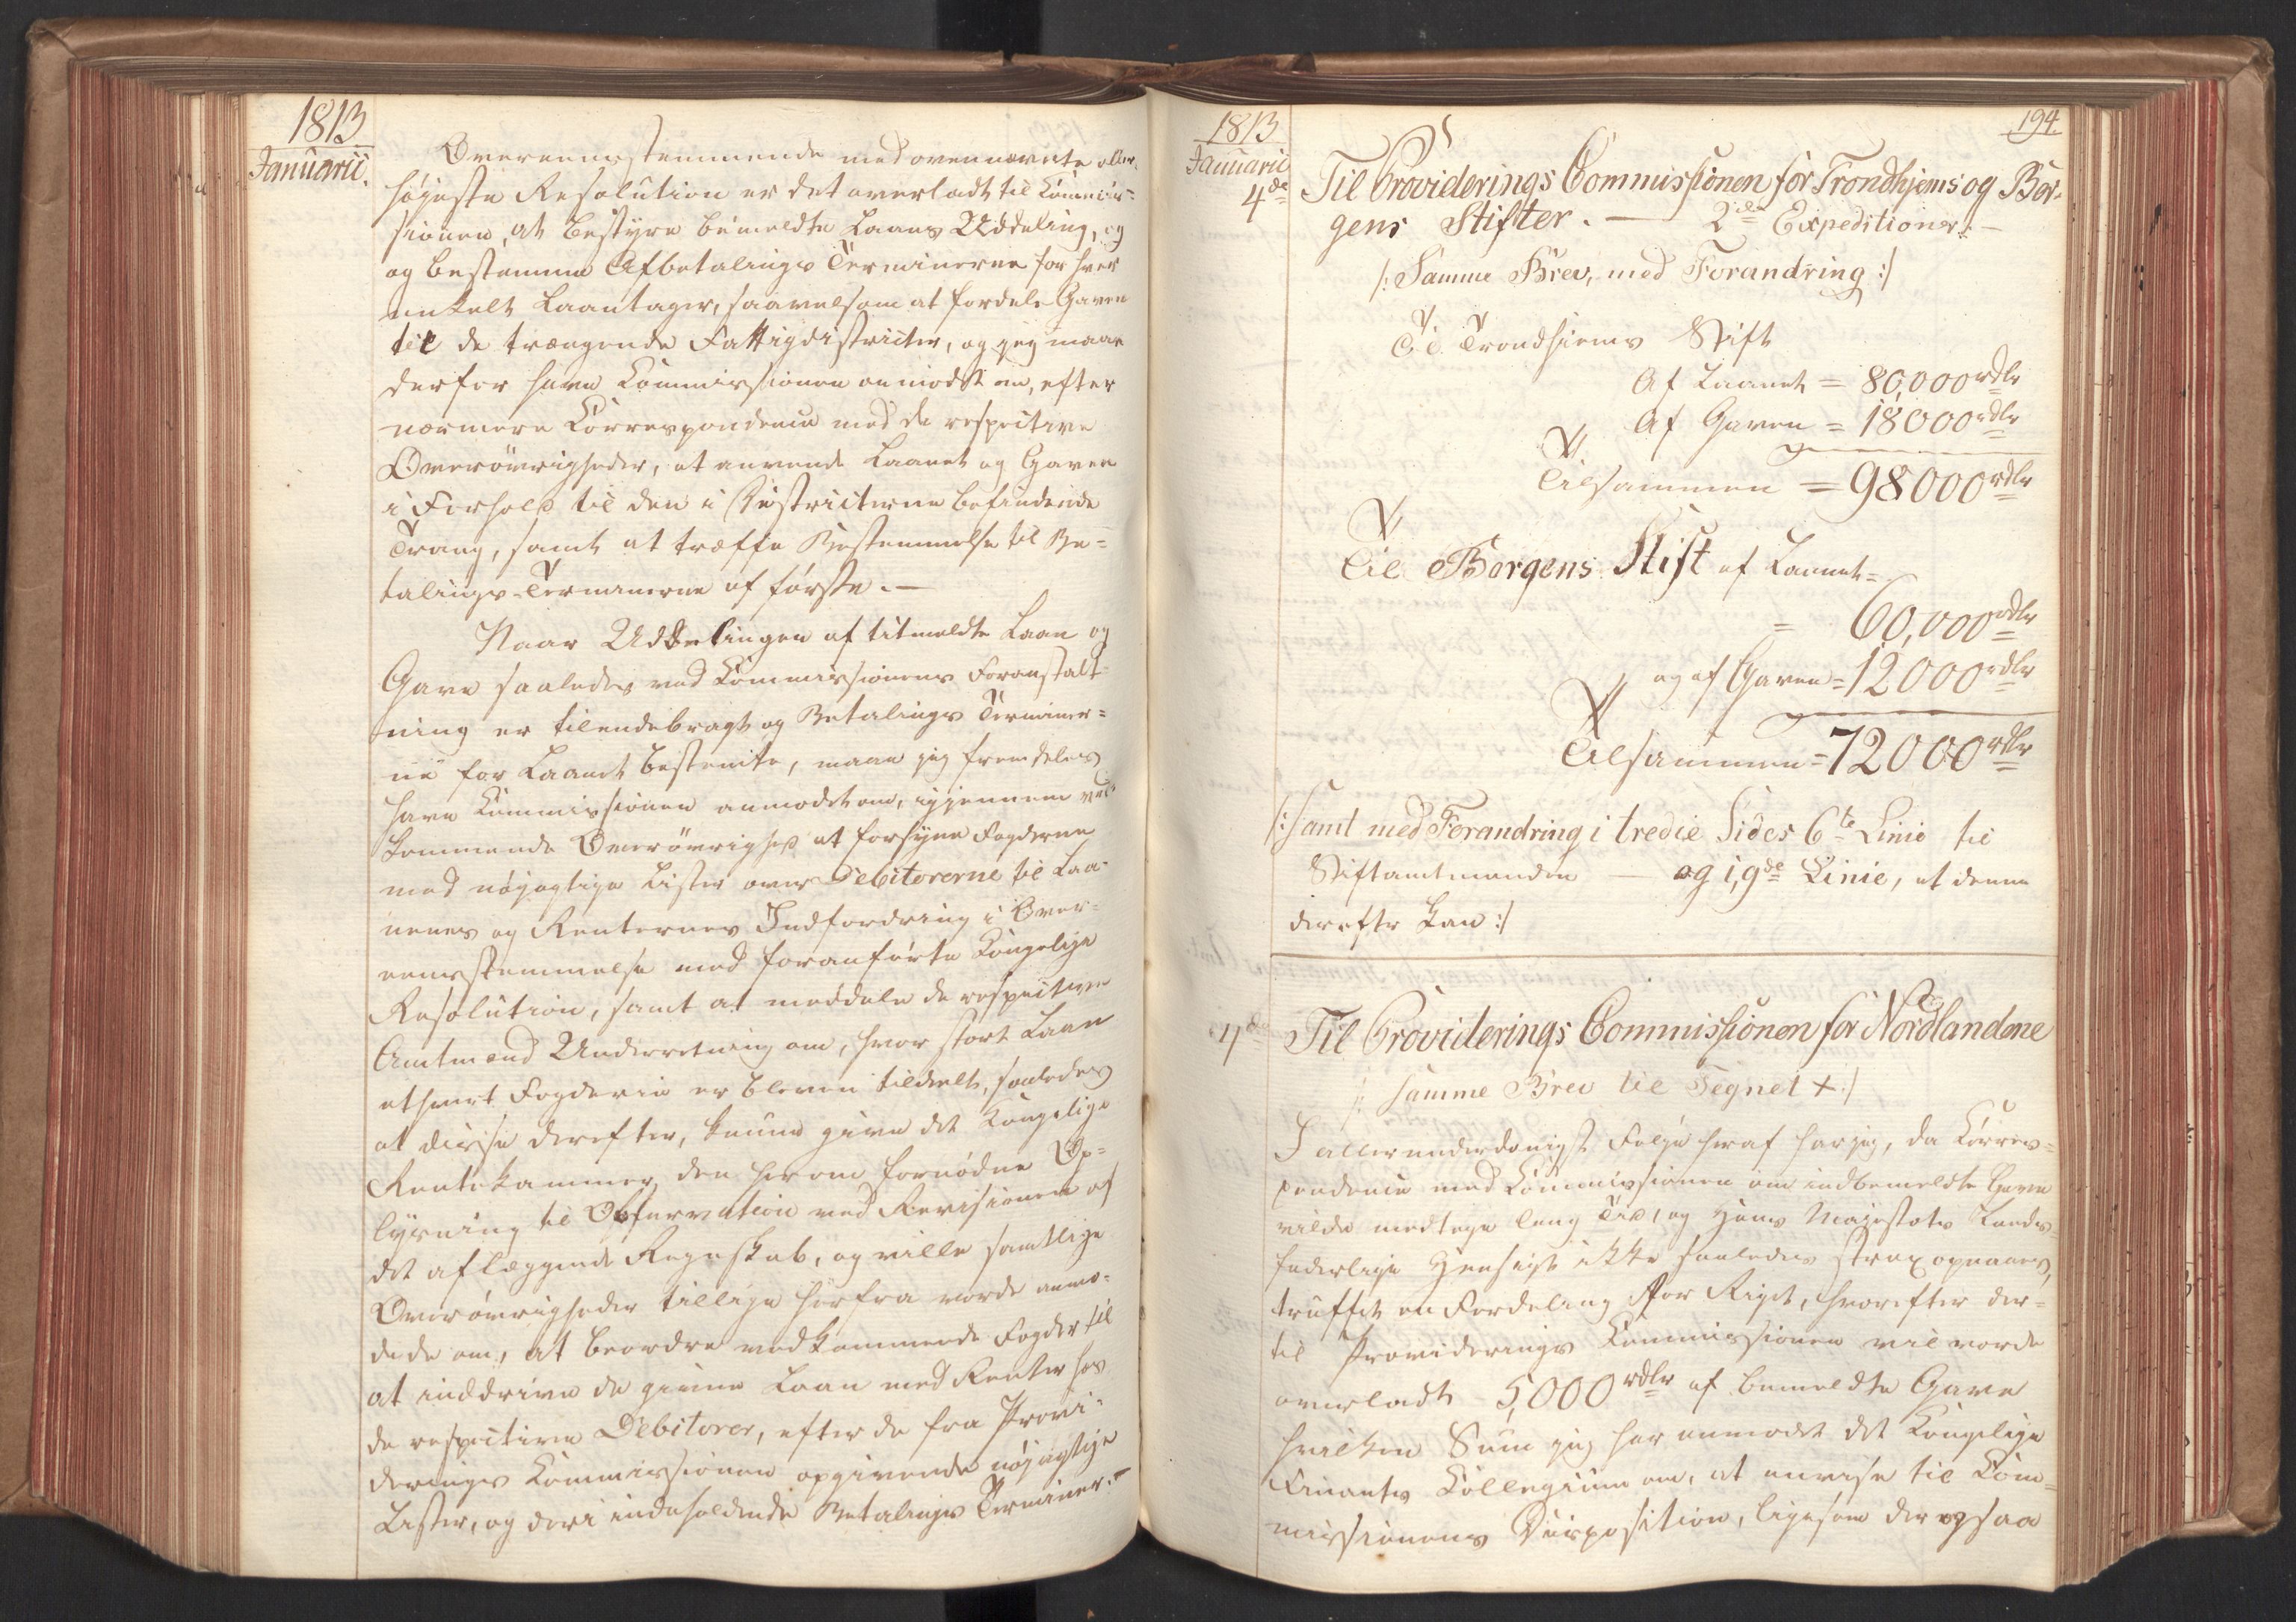 1813
Januarii.
Overeensstemmende med ovennævnte aller-
høyeste Resolution er det overladt til Commis-
sionen, at bestyre bemeldte Laans Uddeling, og
og bestemme Afbetalings Terminerne for hver
enkelt Laantager, saavelsom at fordele Gaven
til de trængende Fattigdistricter, og jeg maae
derfor have Commissionen anmodet om, efter
nærmere Correspondence med de respective
Øverøvrigheder, at anvende Laanet og Gaven
i Forhold til den i Districterne befindende
Trang, samt at træffe Bestemmelse til Be-
talings-Terminerne af første. —
Naar Uddelingen af titmeldte Laan og
Gave saaledes ved Commissionens Foranstalt-
ning er tilendebragt og Betalings Terminer-
ne for Laanet bestemte, maae jeg fremdeles
have Commissionen anmodet om, igjennem ved-
kommende Øverøvrighed at forsyne Fogderne
med nøyagtige Lister over Debitorerne til Laa-
nenes og Renternes Indfordring i Over-
eensstemmelse med foranførte Kongelige
Resolution, samt at meddele de respective
Amtmænd Underretning om, hvor stort Laan
ethvert Fogderie er bleven tildeelt, saaledes
at disse derefter, kunne give det Kongelige
Rentekammer den herom fornødne Op-
lysning til Observation ved Revisionen af
det aflæggende Regnskab, og ville samtlige
Øverøvrigheder tillige herfra vorde anmo-
dede om, at beordre vedkommende Fogder til
at inddrive de givne Laan med Renter hos
de respective Debitorer, efter de fra Provi-
derings Commissionen opgivende nøjagtige
Lister, og deri indeholdende Betalings Terminer.
1813
194.
Januarii
4de
Til Providerings Commissionen for Trondhjems og Ber-
gens Stifter. — 2de Expeditioner. —
/: Samme Brev, med Forandring :/
Til Trondhiems Stift
Af Laanet = 80,000 rdlr
Af Gaven = 18000 rdlr
Tilsammen = 98000 rdlr
Til Bergens Stift af Laanet =
= 60,000 rdlr
og af Gaven = 12000 rdlr
Tilsammen = 72000 rdlr
/: samt med Forandring i tredie Sides 6te Linie til
Stiftamtmanden — og i, 9de Linie, at denne
derefter kan :/
4de
Til Providerings Commissionen for Nordlandene
/: samme Brev til Tegnet + :/
I allerunderdanigst Følge heraf har jeg, da Corres-
pondence med Commissionen om indbemeldte Gave
vilde medtage lang Tid, og Hans Majestæts Lands-
faderlige Hensigt ikke saaledes strax opnaaes,
truffet en Fordeling for Riget, hvorefter der-
til Providerings Commissionen vil vorde
overladt 5,000 rdlr af bemeldte Gave
hvilken Sum jeg har anmodet det Kongelige
Finants Collegium om, at anvise til Com-
missionens Disposition, ligesom der ogsaa